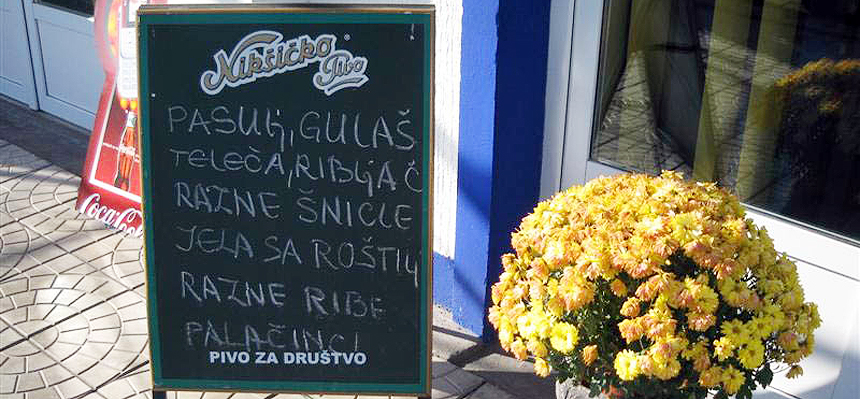 Nikšićko ®
Pivo
PASULJ, GULAŠ
TELEĆA, RIBLJA Č
RAZNE ŠNICLE
JELA SA ROŠTILJ
RAZNE RIBE
PALAČINCI
PIVO ZA DRUŠTVO
Coca-Cola